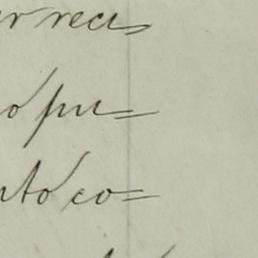 er reci=
o pu=
nto co=